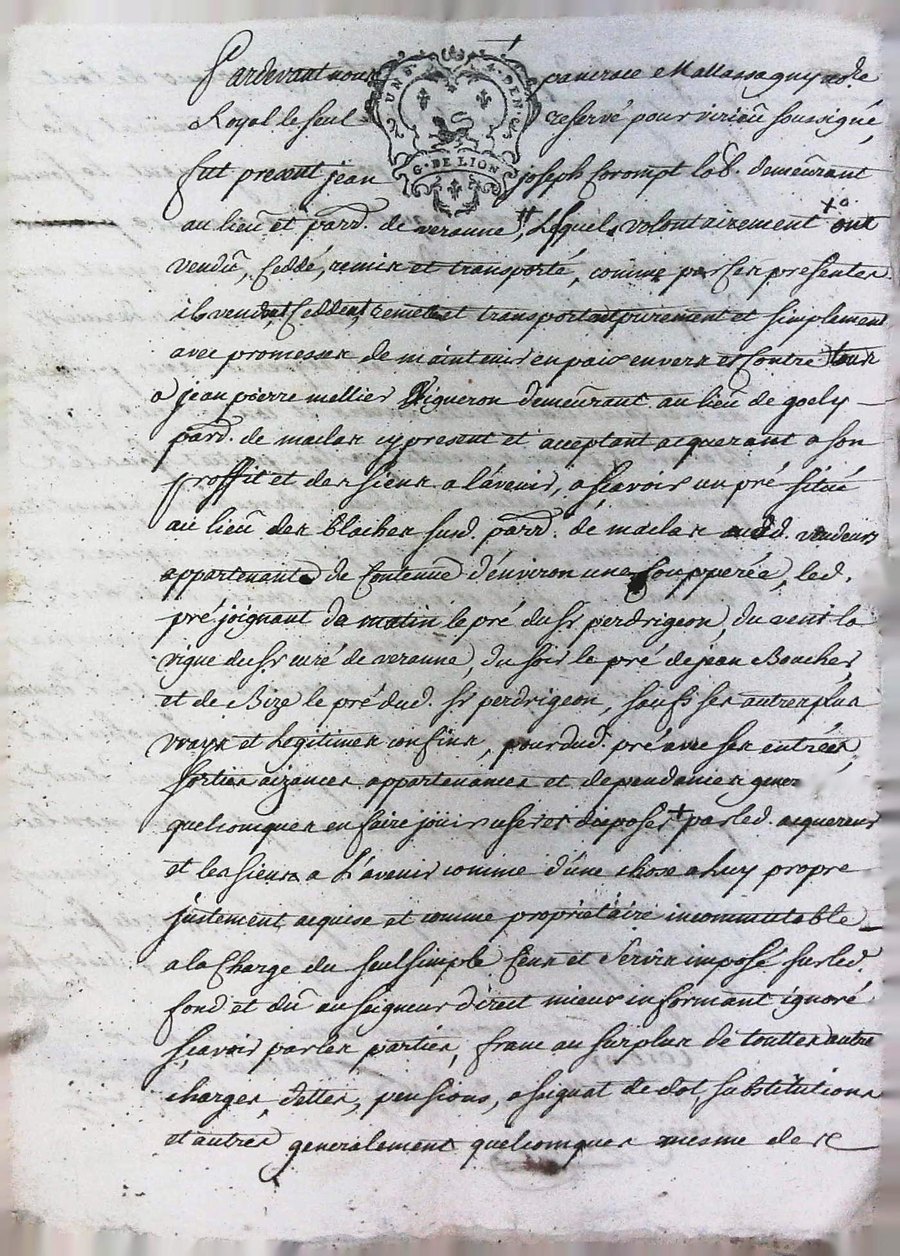 Pardevant nous pancrace Mallassagny no.re
UND 4 DEN
Royal le seul reservé pour virieũ soussigné,
G. DE LION
fut present jean joseph Corompt lab. demeũrant
au lieũ et parr. de veranne, # Lesquels volontairement +o ont
vendũ, Ceddé, remis et transporté, comme par Ces presentes
ils vendent Ceddent, remetent transportent purement et simplement
avec promesses de maintenir en paix envers et Contre tous
a jean pierre mellier Vigneron demeũrant au lieũ de goely
parr. de maclas cy present et acceptant acquerant a son
proffit et des siens a lávenir, a sçavoir un pré situé
au lieũ des blaches surd. parr. de maclas aud. vendeurs
appartenant de Contenue d'énviron une Coupperée, led.
pré joignant de matin le pré du Sr perdrigeon, du vent la
vigne du Sr curé de veranne, du soir le pré de jean Boucher,
et de Bize le pré dud. Sr perdrigeon, saufs ses autres plus
vrays et Legitimes confins, pour dud. pré avec ses entrées,
sorties aizances appartenances et dependances gener
quelconques en faire jouir user et disposer + par led. acquereur
et les siens a L'avenir comme d'une chose a Luy propre
justement acquise et comme propriétaire incommutable
a la Charge du seul simple Cens et Servis imposé sur led.
fond et dũ au seigneur direct mieux informant ignoré
sçavoir par les parties, franc au surplus de touttes autres
charges, dettes, pensions, assignat de dot substitutions
et autres generalement quelconques mesme de ce